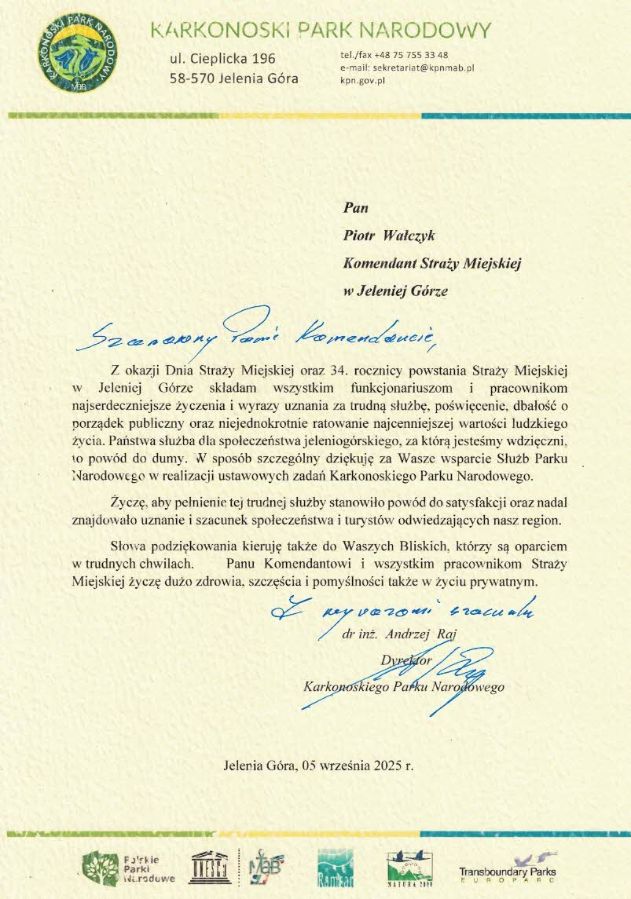 KARKONOSKI PARK NARODOWY
MaB
KARKONOSKI PARK NARODOWY
ul. Cieplicka 196
58-570 Jelenia Góra
tel./fax +48 75 755 33 48
e-mail: sekretariat@kpnmab.pl
kpn.gov.pl
Pan
Piotr Wałczyk
Komendant Straży Miejskiej
w Jeleniej Górze
Szanowny Panie Komendancie,
Z okazji Dnia Straży Miejskiej oraz 34. rocznicy powstania Straży Miejskiej
w Jeleniej Górze składam wszystkim funkcjonariuszom i pracownikom
najserdeczniejsze życzenia i wyrazy uznania za trudną służbę, poświęcenie, dbałość o
porządek publiczny oraz niejednokrotnie ratowanie najcenniejszej wartości ludzkiego
życia. Państwa służba dla społeczeństwa jeleniogórskiego, za którą jesteśmy wdzięczni,
to powód do dumy. W sposób szczególny dziękuję za Wasze wsparcie Służb Parku
Narodowego w realizacji ustawowych zadań Karkonoskiego Parku Narodowego.
Życzę, aby pełnienie tej trudnej służby stanowiło powód do satysfakcji oraz nadal
znajdowało uznanie i szacunek społeczeństwa i turystów odwiedzających nasz region.
Słowa podziękowania kieruję także do Waszych Bliskich, którzy są oparciem
w trudnych chwilach. Panu Komendantowi i wszystkim pracownikom Straży
Miejskiej życzę dużo zdrowia, szczęścia i pomyślności także w życiu prywatnym.
Z wyrazami szacunku
dr inż. Andrzej Raj
Dyrektor
Karkonoskiego Parku Narodowego
Jelenia Góra, 05 września 2025 r.
Polskie
Parki
Narodowe
UNESCO
MaB
Ramsar
NATURA 2000
Transboundary Parks
EUROPARC